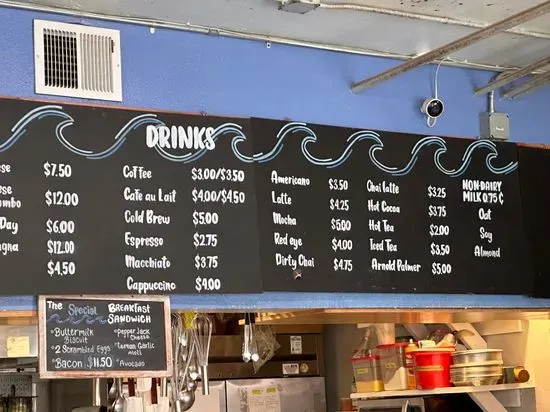 DRINKS
ese $7.50
ese
ombo $12.00
Day $6.00
agna $12.00
$4.50
Coffee $3.00/$3.50
Cafe au Lait $4.00/4.50
Cold Brew $5.00
Espresso $2.75
Macchiato $3.75
Cappuccino $4.00
Americano $3.50
Latte $4.25
Mocha $5.00
Red eye $4.00
Dirty Chai $4.75
Chai latte $3.25
Hot Cocoa $3.75
Hot Tea $2.00
Iced Tea $3.50
Arnold Palmer $5.00
NON-DAIRY
MILK 0.75¢
Oat
Soy
Almond
The Special BREAKFAST
SANDWICH
°Buttermilk
Biscuit
°2 Scrambled Eggs
°Bacon $11.50
°pepper Jack
cheese
°Lemon Garlic
Aioli
°Avocado